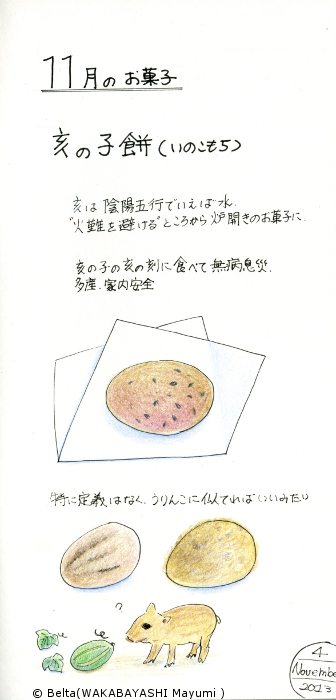 11月のお菓子
亥の子餅(いのこもち)
亥は陰陽五行でいえば水.
"火難を避ける"ところから炉開きのお菓子に.
亥の子の亥の刻に食べて無病息災.
多産.家内安全
特に定義はなく、うりんこに似てればいいみたい
?
4
November
2013
© Belta(WAKABAYASHI Mayumi )